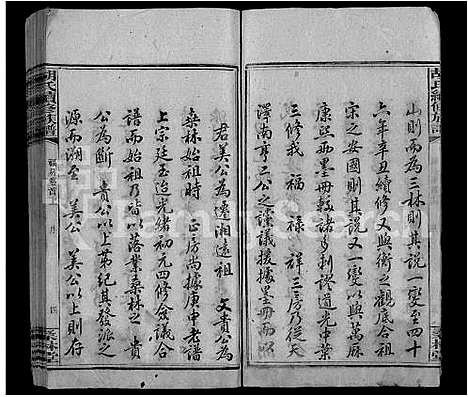 胡氏續修族譜
山則而為三林則其說一變至四十
六年辛丑續修又與術之觀底合祖
宋之安國則其說又一變以與萬厤
康熙两墨冊較諸多刺謬道光中葉
三修我 福 祿 祥三房乃從天
澤尚亨二公之謹議援據墨冊而以
君美公為遷湘遠祖 文貴公為
桑林始祖 時 正房尚據庚申老譜
上宗廷玉迨光緒初元四修僉議合
譜而始祖乃皆以落業桑林之 文
公為斷 貴公以上第紀其發派之
源而溯至 美公 美公以上則存
胡氏續修族譜
桑林堂
FamilySearch